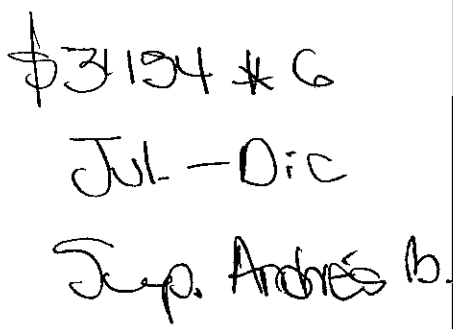 $3194 * 6
Jul - Dic
Jup. Andrés B.